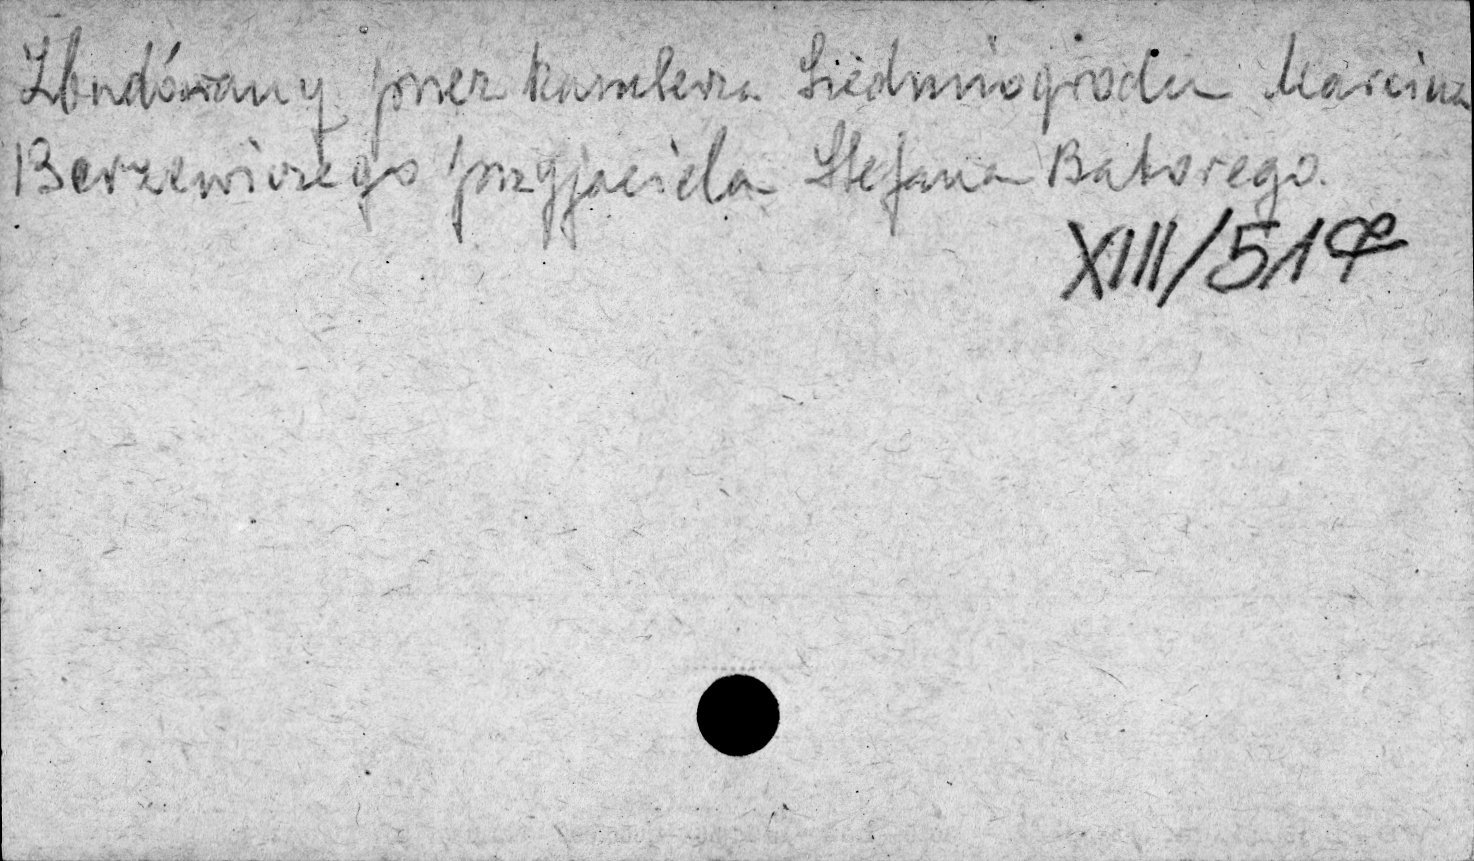 Zbudówany przez kanclerza Siedmiogrodu Marcina
Berzewiczego przyjaciela Stefana Batorego.
XIII/519